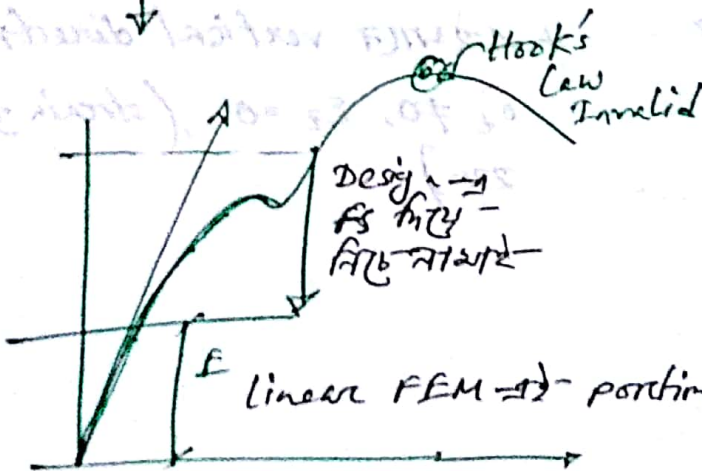 Hook's
Law
Invalid
Design এ
FS দিয়ে
নিচে নামাই
E
linear FEM এই portion